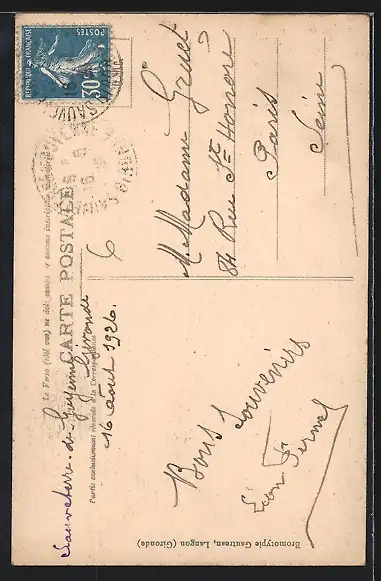 RÉPUBLIQUE FRANÇAISE
POSTES
30
CARTE POSTALE
Partie exclusivement réservée à la Correspondance
Le Verso (côté vue) ne doit
Sauveterre-de-Guyenne
Gironde
16 août 1926.
Bons Souvenirs
M. Madame Gruet
84 Rue St Honoré
Paris
Seine
6
Bromotypie Gautreau, Langon (Gironde)